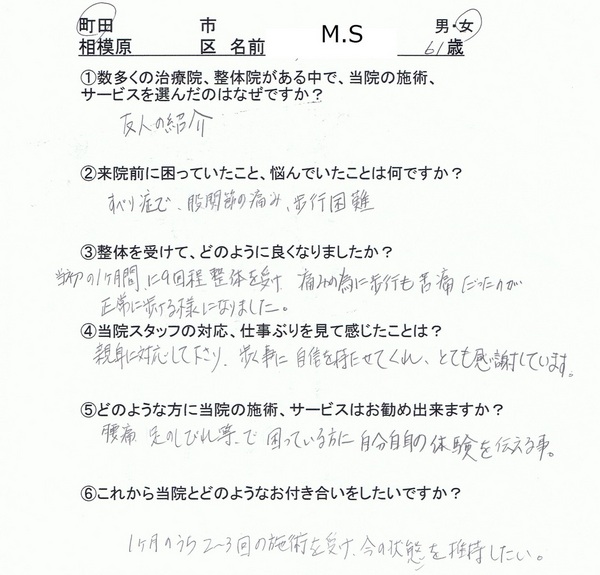 町田 市 男・女
相模原 区 名前 M.S 61歳
①数多くの治療院、整体院がある中で、当院の施術、
サービスを選んだのはなぜですか?
友人の紹介
②来院前に困っていたこと、悩んでいたことは何ですか?
すべり症で、股関節の痛み、歩行困難
③整体を受けて、どのように良くなりましたか?
当初の1ヶ月間に9回程整体を受け 痛みの為に歩行も苦痛だったのが
正常に歩ける様になりました。
④当院スタッフの対応、仕事ぶりを見て感じたことは?
親身に対応して下さり、歩く事に自信を持たせてくれ、とても感謝しています。
⑤どのような方に当院の施術、サービスはお勧め出来ますか?
腰痛 足のしびれ等で困っている方に自分自身の体験を伝える事。
⑥これから当院とどのようなお付き合いをしたいですか?
1ヶ月のうち2~3回の施術を受け、今の状態を維持したい。